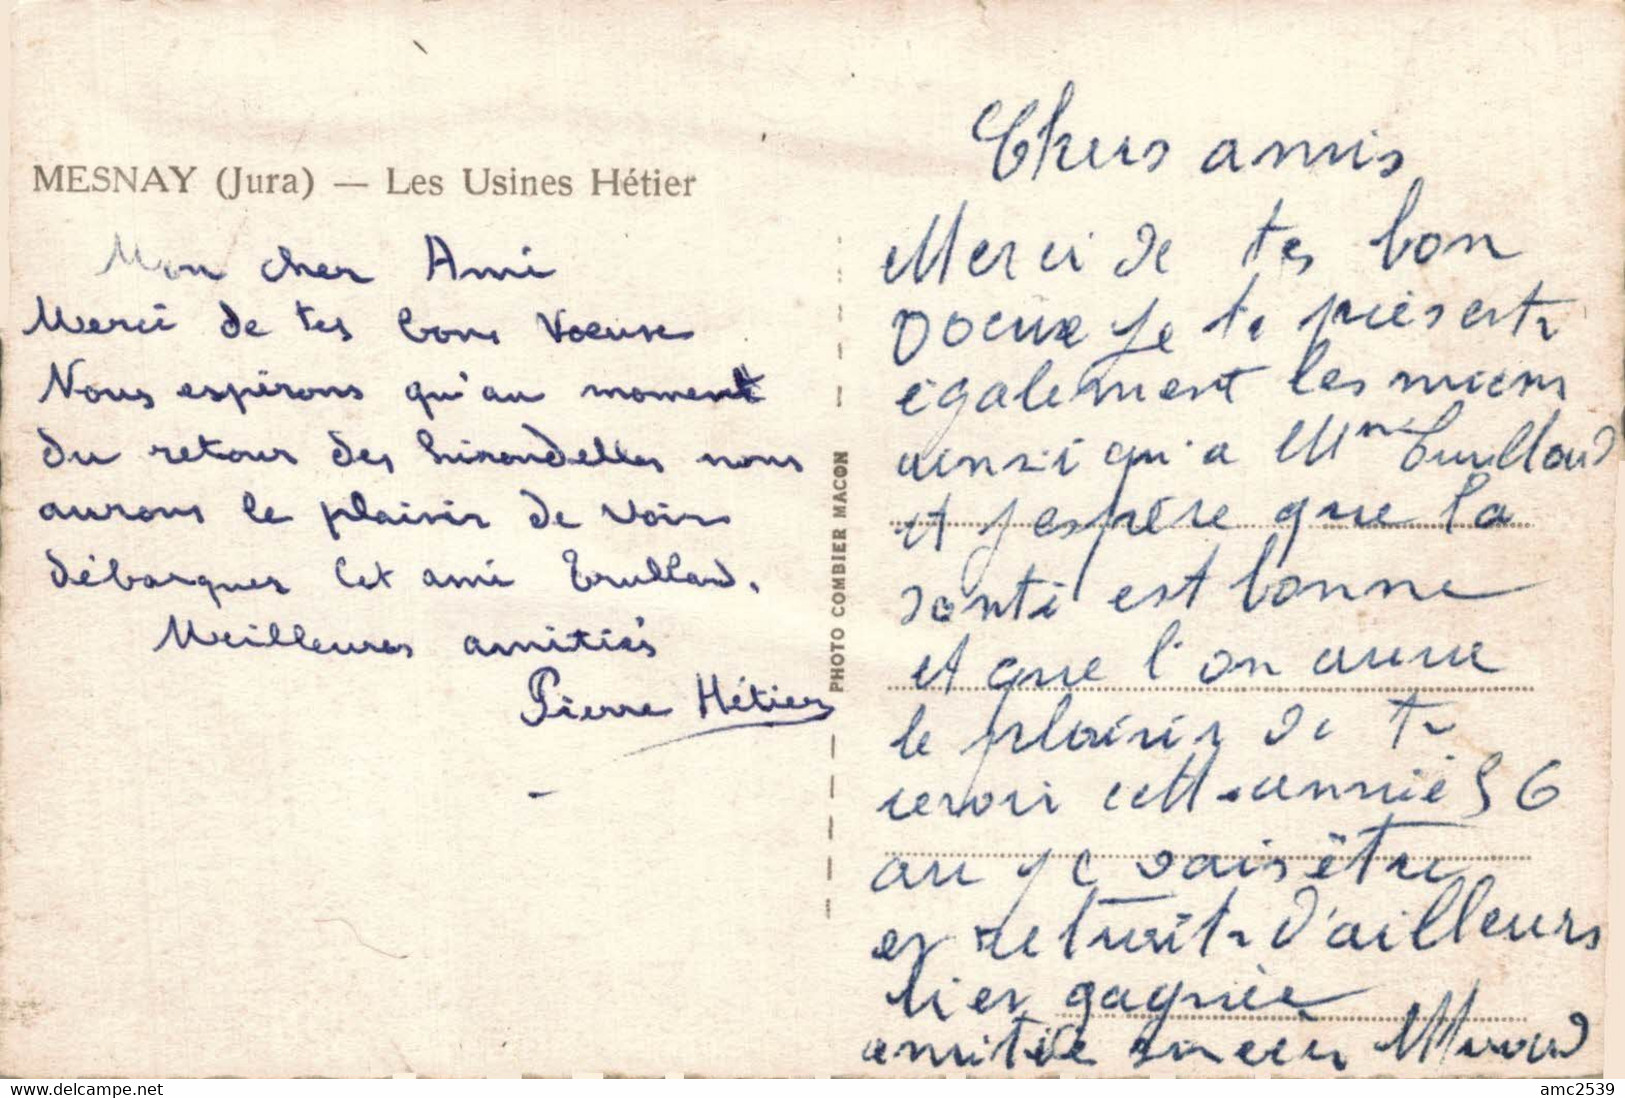 MESNAY (Jura) — Les Usines Hétier
Mon cher Ami
Merci de tes bons Voeux
Nous espérons qu'au moment
du retour des hirondelles nous
aurons le plaisir de voir
débarquer cet ami Trullard.
Meilleures amitiés
Pierre Hétier
PHOTO COMBIER MACON
Chers amis
Merci de tes bon
voeux je te présente
également les miens
ainsi qu'a Mme
et j'espère que la
santé est bonne
et que l'on aura
le plaisir de te
revoir cette année 56
ou je vais être
en retraite d'ailleurs
bien gagnée
amitié sincère
delcampe.net
amc2539